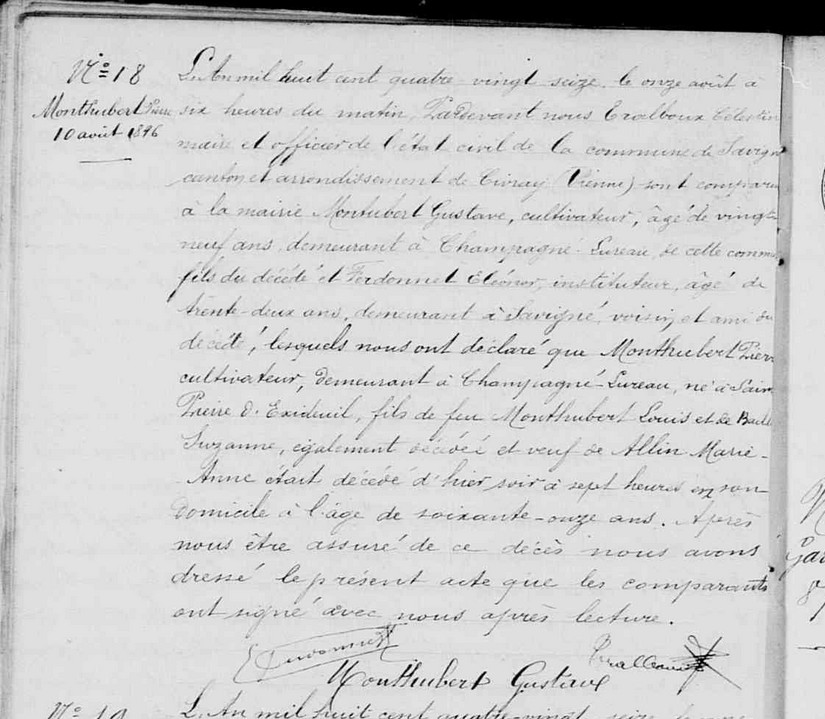 N° 18
Monthubert Pierre
10 août 1896
L'An mil huit cent quatre-vingt seize, le onze août à
six heures du matin, Pardevant nous Célestin
maire et officier de l'état civil de la commune de Savign
canton et arrondissement de Civray (Vienne) sont comparu
à la mairie Monthubert Gustave, cultivateur, âgé de vingt
neuf ans, demeurant à Champagné-Lureau, de cette commu
fils du décédé et Ferdonnet Eléonor, instituteur, âgé de
trente-deux ans, demeurant à Savigné, voisin, et ami du
décédé, lesquels nous ont déclaré que Monthubert Pierr
cultivateur, demeurant à Champagné-Lureau, né à Sain
Pierre d'Exideuil, fils de feu Monthubert Louis et de
Suzanne, également décédée et veuf de Allin Marie-
Anne était décédé d'hier soir à sept heures en son
domicile à l'âge de soixante-onze ans. Après
nous être assuré de ce décès nous avons
dressé le présent acte que les comparants
ont signé avec nous après lecture.
Monthubert Gustave
N° 19
L'An mil huit cent quatre-vingt seize